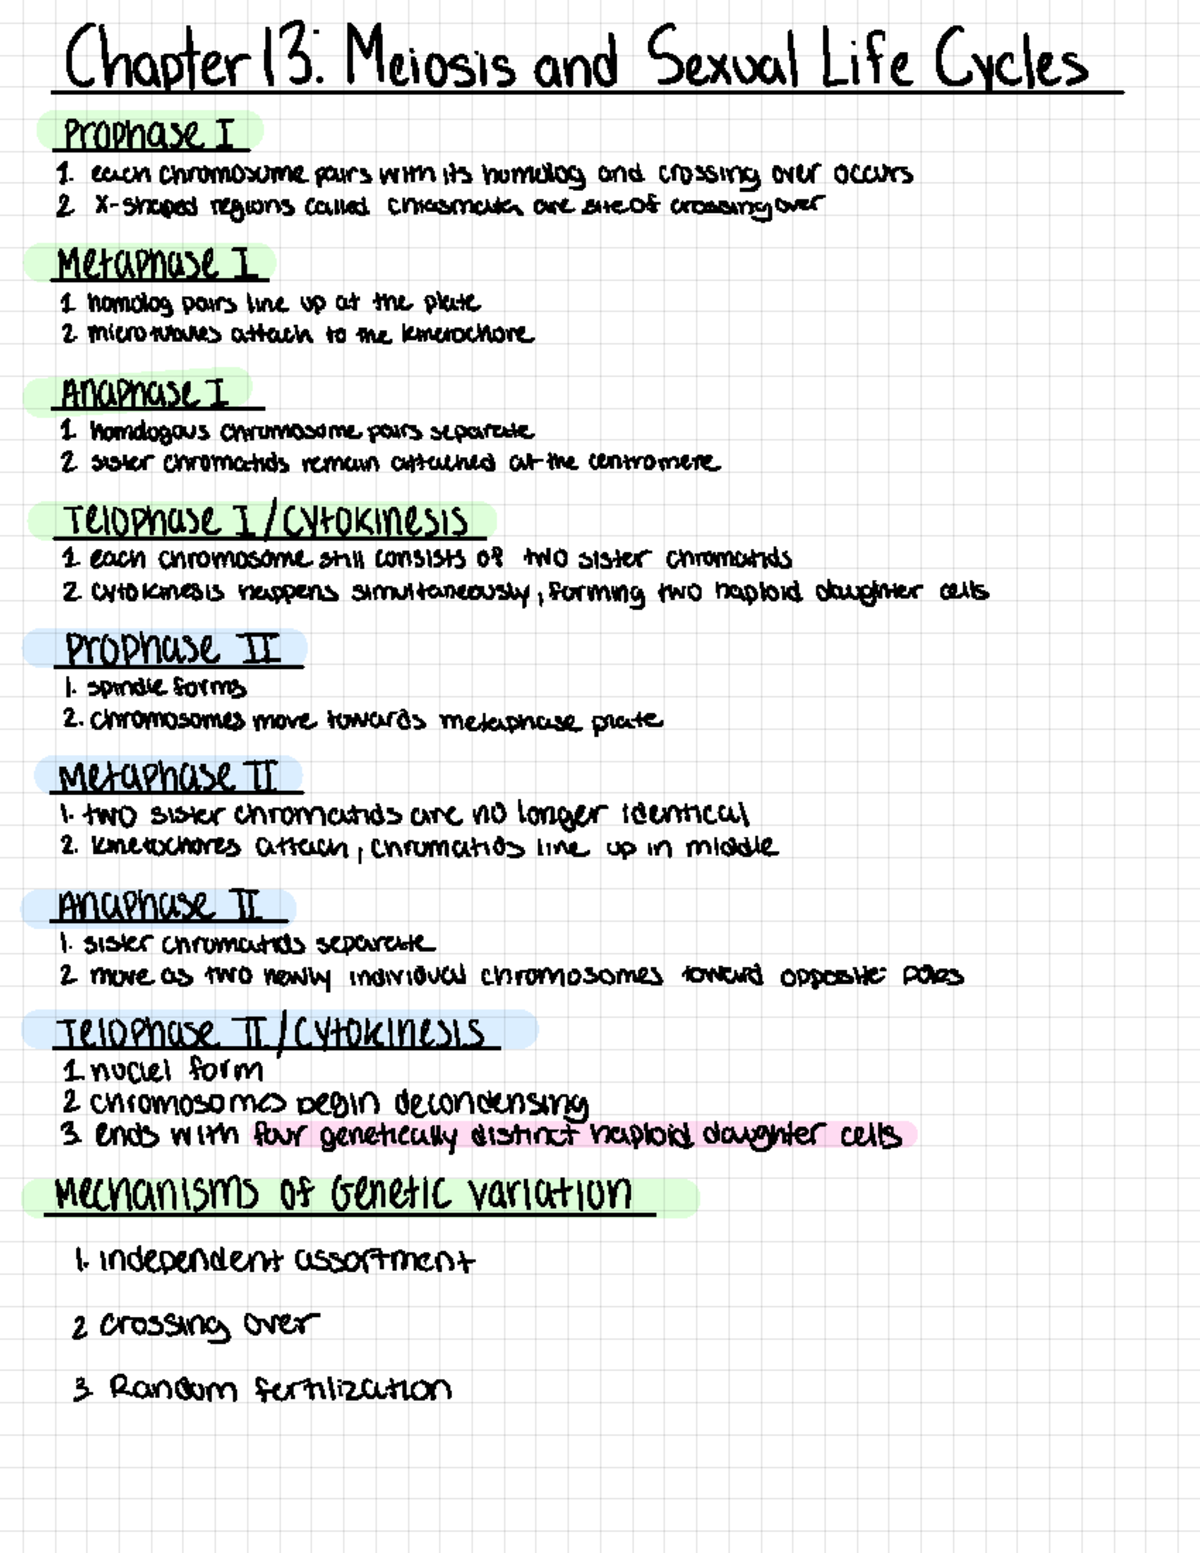 Chapter 13: Meiosis and Sexual Life Cycles
Prophase I
1. each chromosome pairs with its homolog and crossing over occurs
2 X-shaped regions called chiasmata are site of crossing over
Metaphase I
1 homolog pairs line up at the plate
2 microtubules attach to the kinetochore
Anaphase I
1 homologous chromosome pairs separate
2 sister chromatids remain attached at the centromere
Telophase I / Cytokinesis
1 each chromosome still consists of two sister chromatids
2 cytokinesis happens simultaneously, forming two haploid daughter cells
Prophase II
1. spindle forms
2. chromosomes move towards metaphase plate
Metaphase II
1. two sister chromatids are no longer identical
2. kinetochores attach, chromatids line up in middle
Anaphase II
1. sister chromatids separate
2 move as two newly individual chromosomes toward opposite poles
Telophase II / Cytokinesis
1 nuclei form
2 chromosomes begin decondensing
3 ends with four genetically distinct haploid daughter cells
Mechanisms of Genetic variation
1. independent assortment
2 crossing over
3 Random fertilization